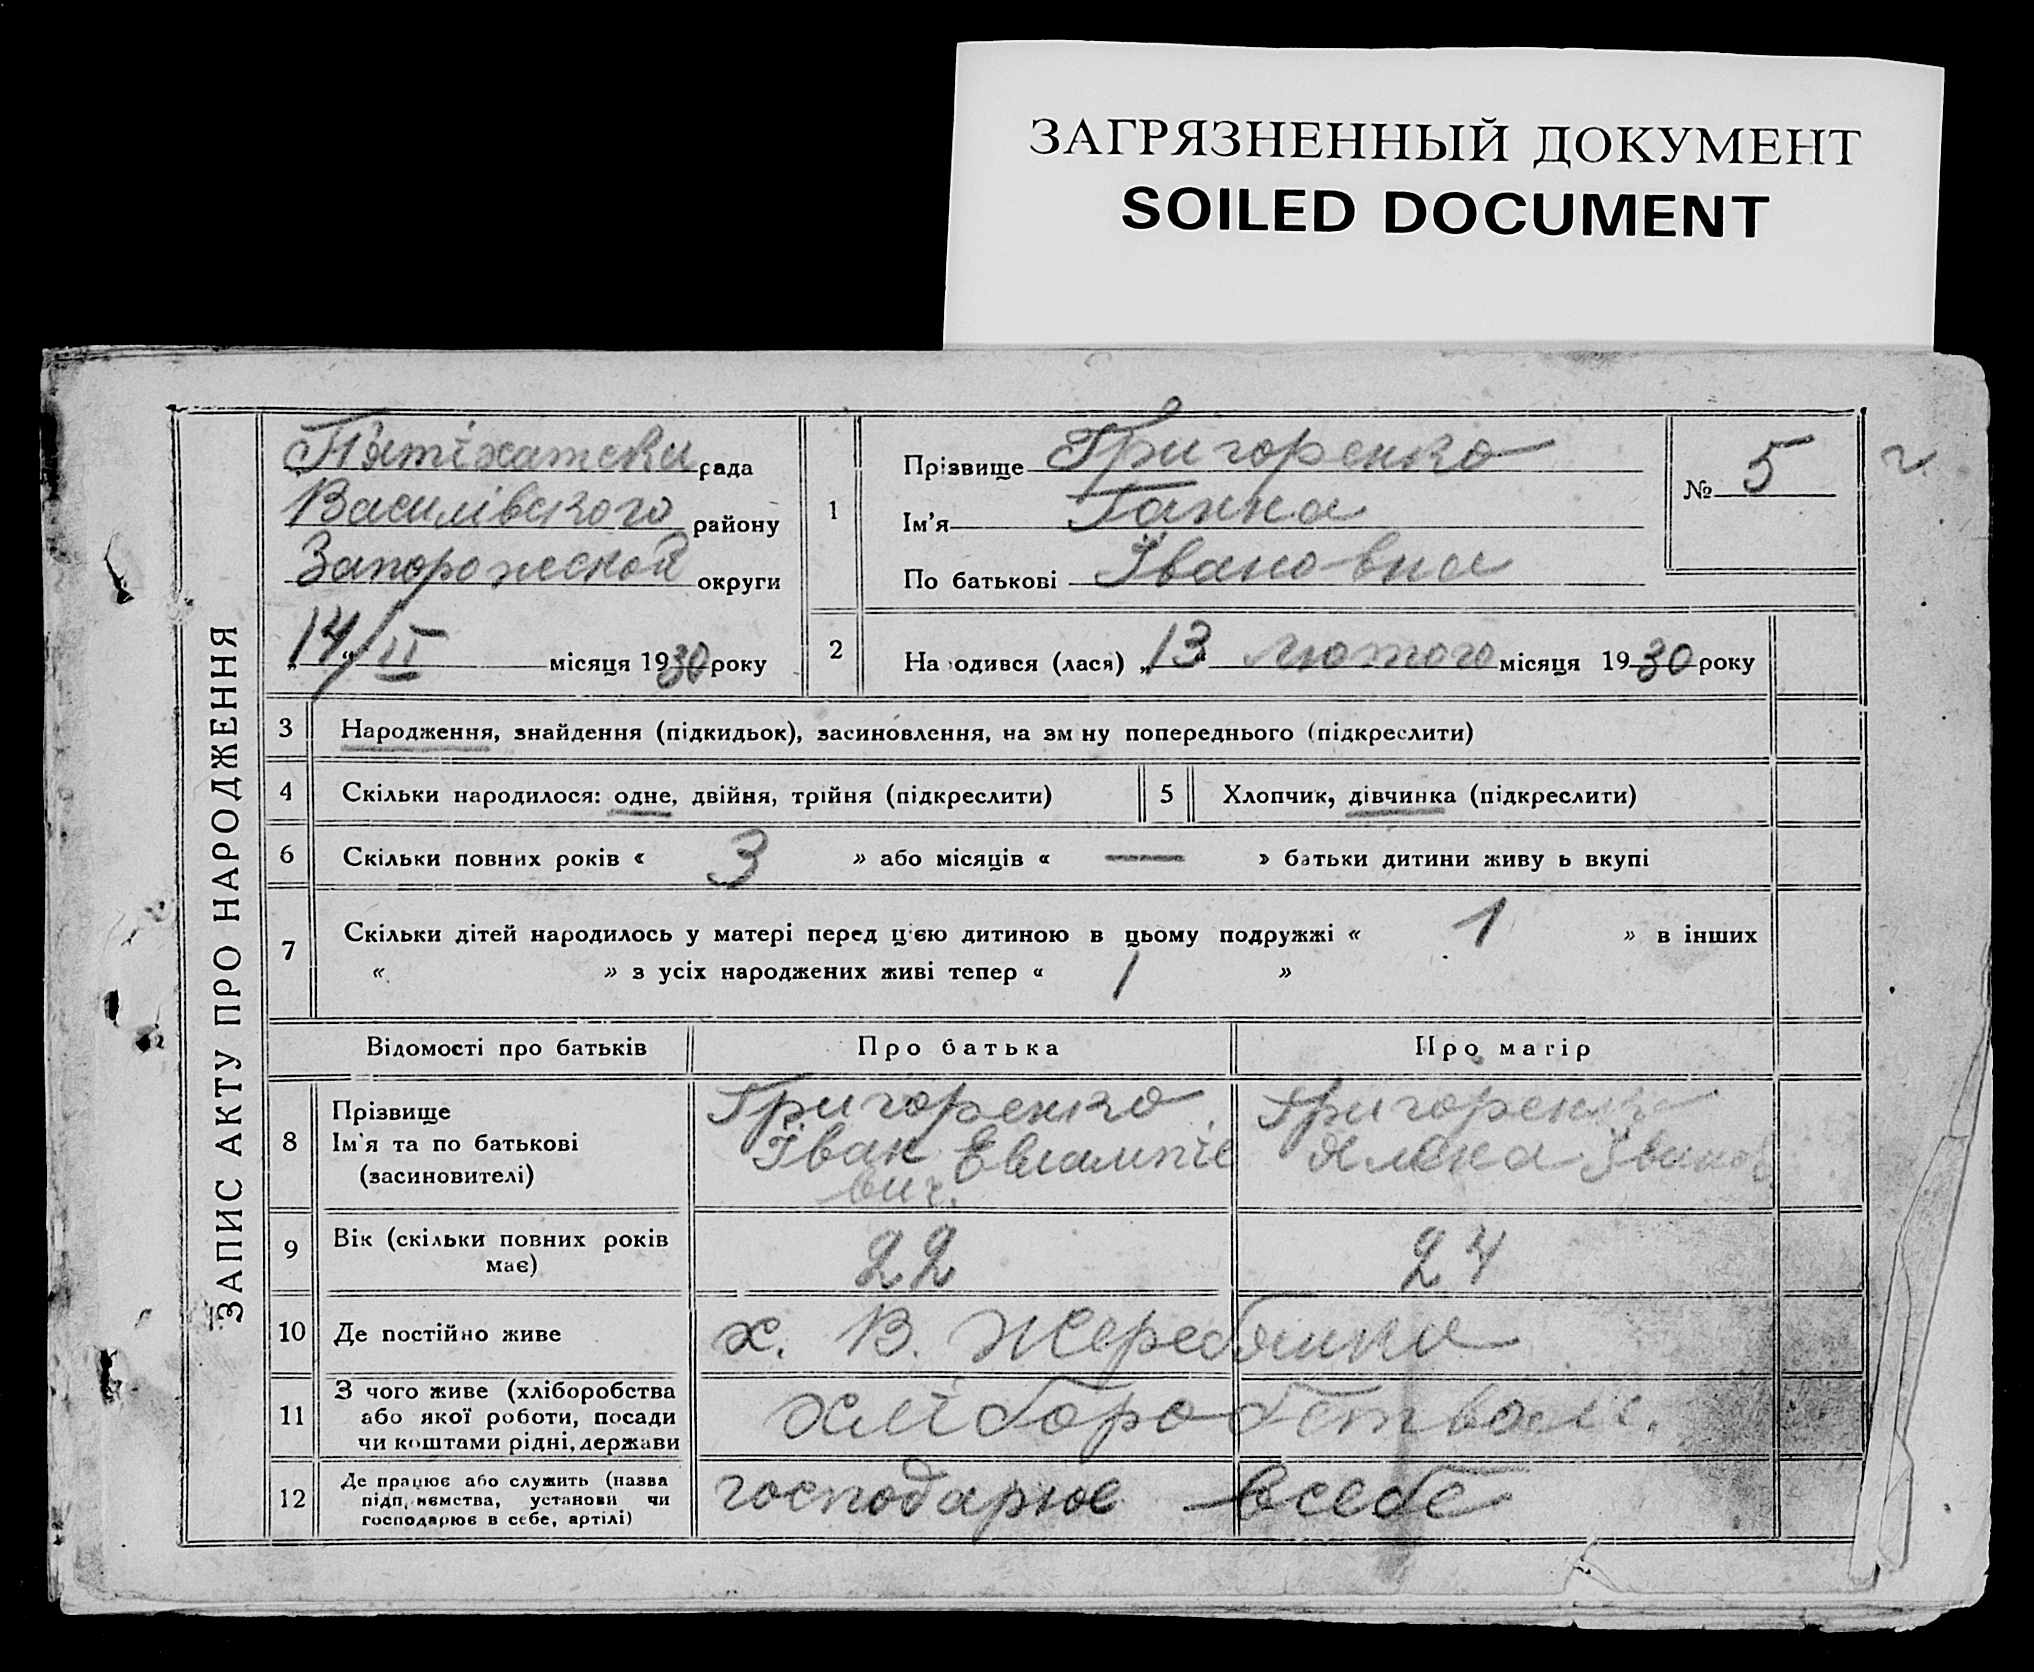 ЗАГРЯЗНЕННЫЙ ДОКУМЕНТ
SOILED DOCUMENT
ЗАПИС АКТУ ПРО НАРОДЖЕННЯ
П'ятіхатски рада
Василівского району
Запорожской округи
„14/II місяця 1930 року
1
Прізвище Григоренко
Ім'я Ганна
По батькові Івановна
№ 5
2
На одився (лася) „13 лютого місяця 1930 року
3 Народження, знайдення (підкидьок), засиновлення, на зм ну попереднього (підкреслити)
4 Скільки народилося: одне, двійня, трійня (підкреслити)
5 Хлопчик, дівчинка (підкреслити)
6 Скільки повних років « 3 » або місяців « — » батьки дитини живу ь вкупі
7 Скільки дітей народилось у матері перед цією дитиною в цьому подружжі « 1 » в інших
« » з усіх народжених живі тепер « 1 »
Відомості про батьків Про батька Про матір
8 Прізвище
Ім'я та по батькові
(засиновителі)
Григоренко
Іван Евлампіе
вич.
Григоренко
Ялена Іванов
9 Вік (скільки повних років
має)
22 24
10 Де постійно живе х. В. Жеребянки
11 З чого живе (хліборобства
або якої роботи, посади
чи коштами рідні, держави
хліборобством.
12 Де працює або служить (назва
підп, иємства, установи чи
господарює в себе, артілі)
господарює всебе